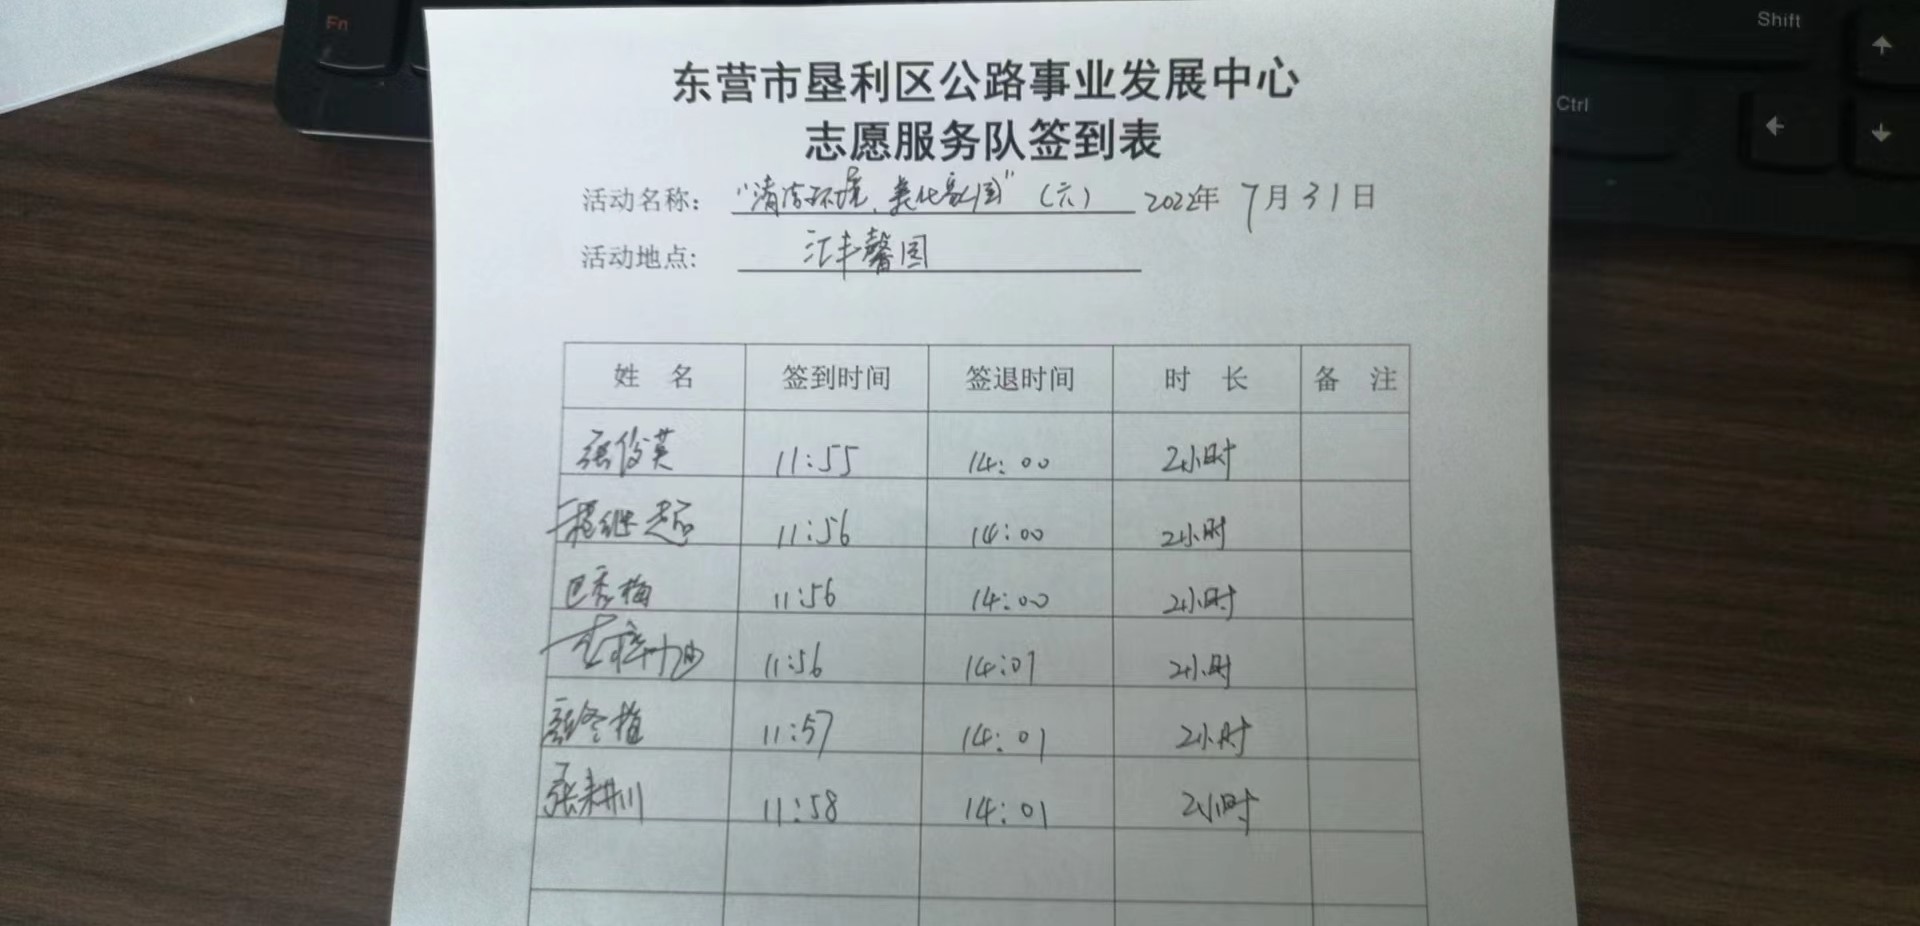 Fn
Shift
Ctrl
东营市垦利区公路事业发展中心
志愿服务队签到表
活动名称： “清洁环境、美化家园”（六） 2022年 7月31日
活动地点: 汇丰馨园
姓 名 签到时间 签退时间 时 长 备 注
张俊英 11:55 14:00 2小时
程继超 11:56 14:00 2小时
巴秀梅 11:56 14:00 2小时
11:56 14:01 2小时
11:57 14:01 2小时
张耕川 11:58 14:01 2小时